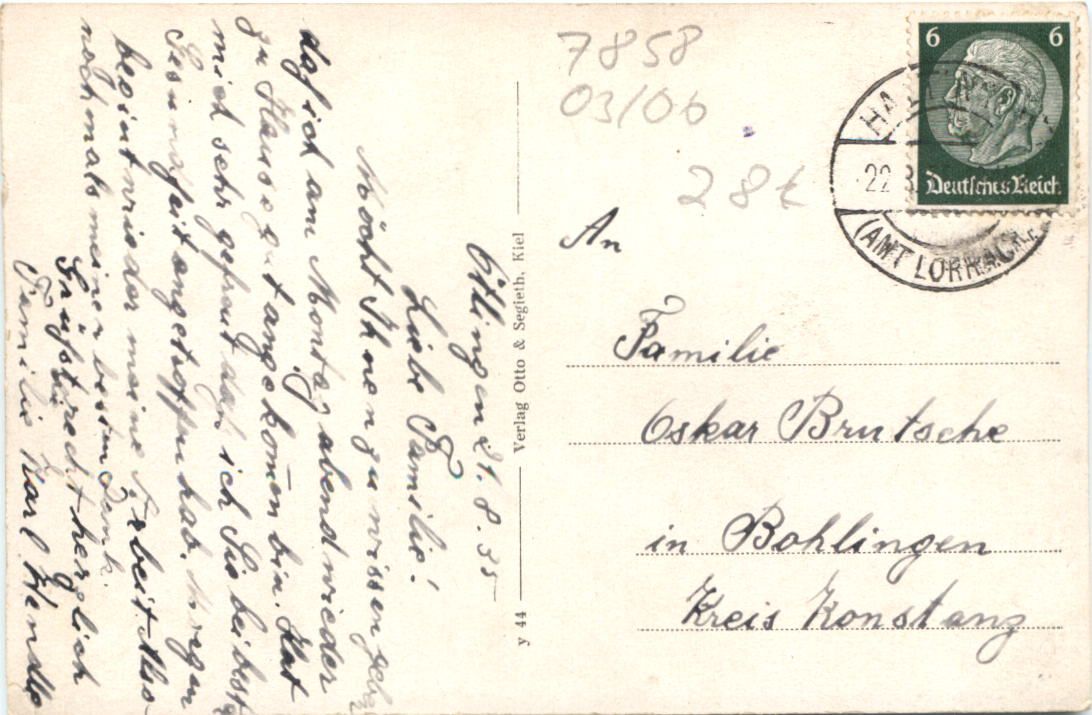 Ötlingen 21.8.35
Liebe Familie!
Möcht Ihnen zu wissen geben
daß ich am Montag abend wieder
zu Hause gut angekomen bin. Hat
mich sehr gefreut daß ich Sie bei bester
Gesundheit angetroffen hab. Morgen
begint wieder meine Arbeit. Also
nochmals meinen besten Dank.
Grüßt recht herzlich
Familie Karl Wendle
y 44 Verlag Otto & Segieth, Kiel
7858
03/06
28t
6 6
Deutsches Reich
HALTINGEN
22.8
(AMT LÖRRACH)
An
Familie
Oskar Brutsche
in Bohlingen
Kreis Konstanz